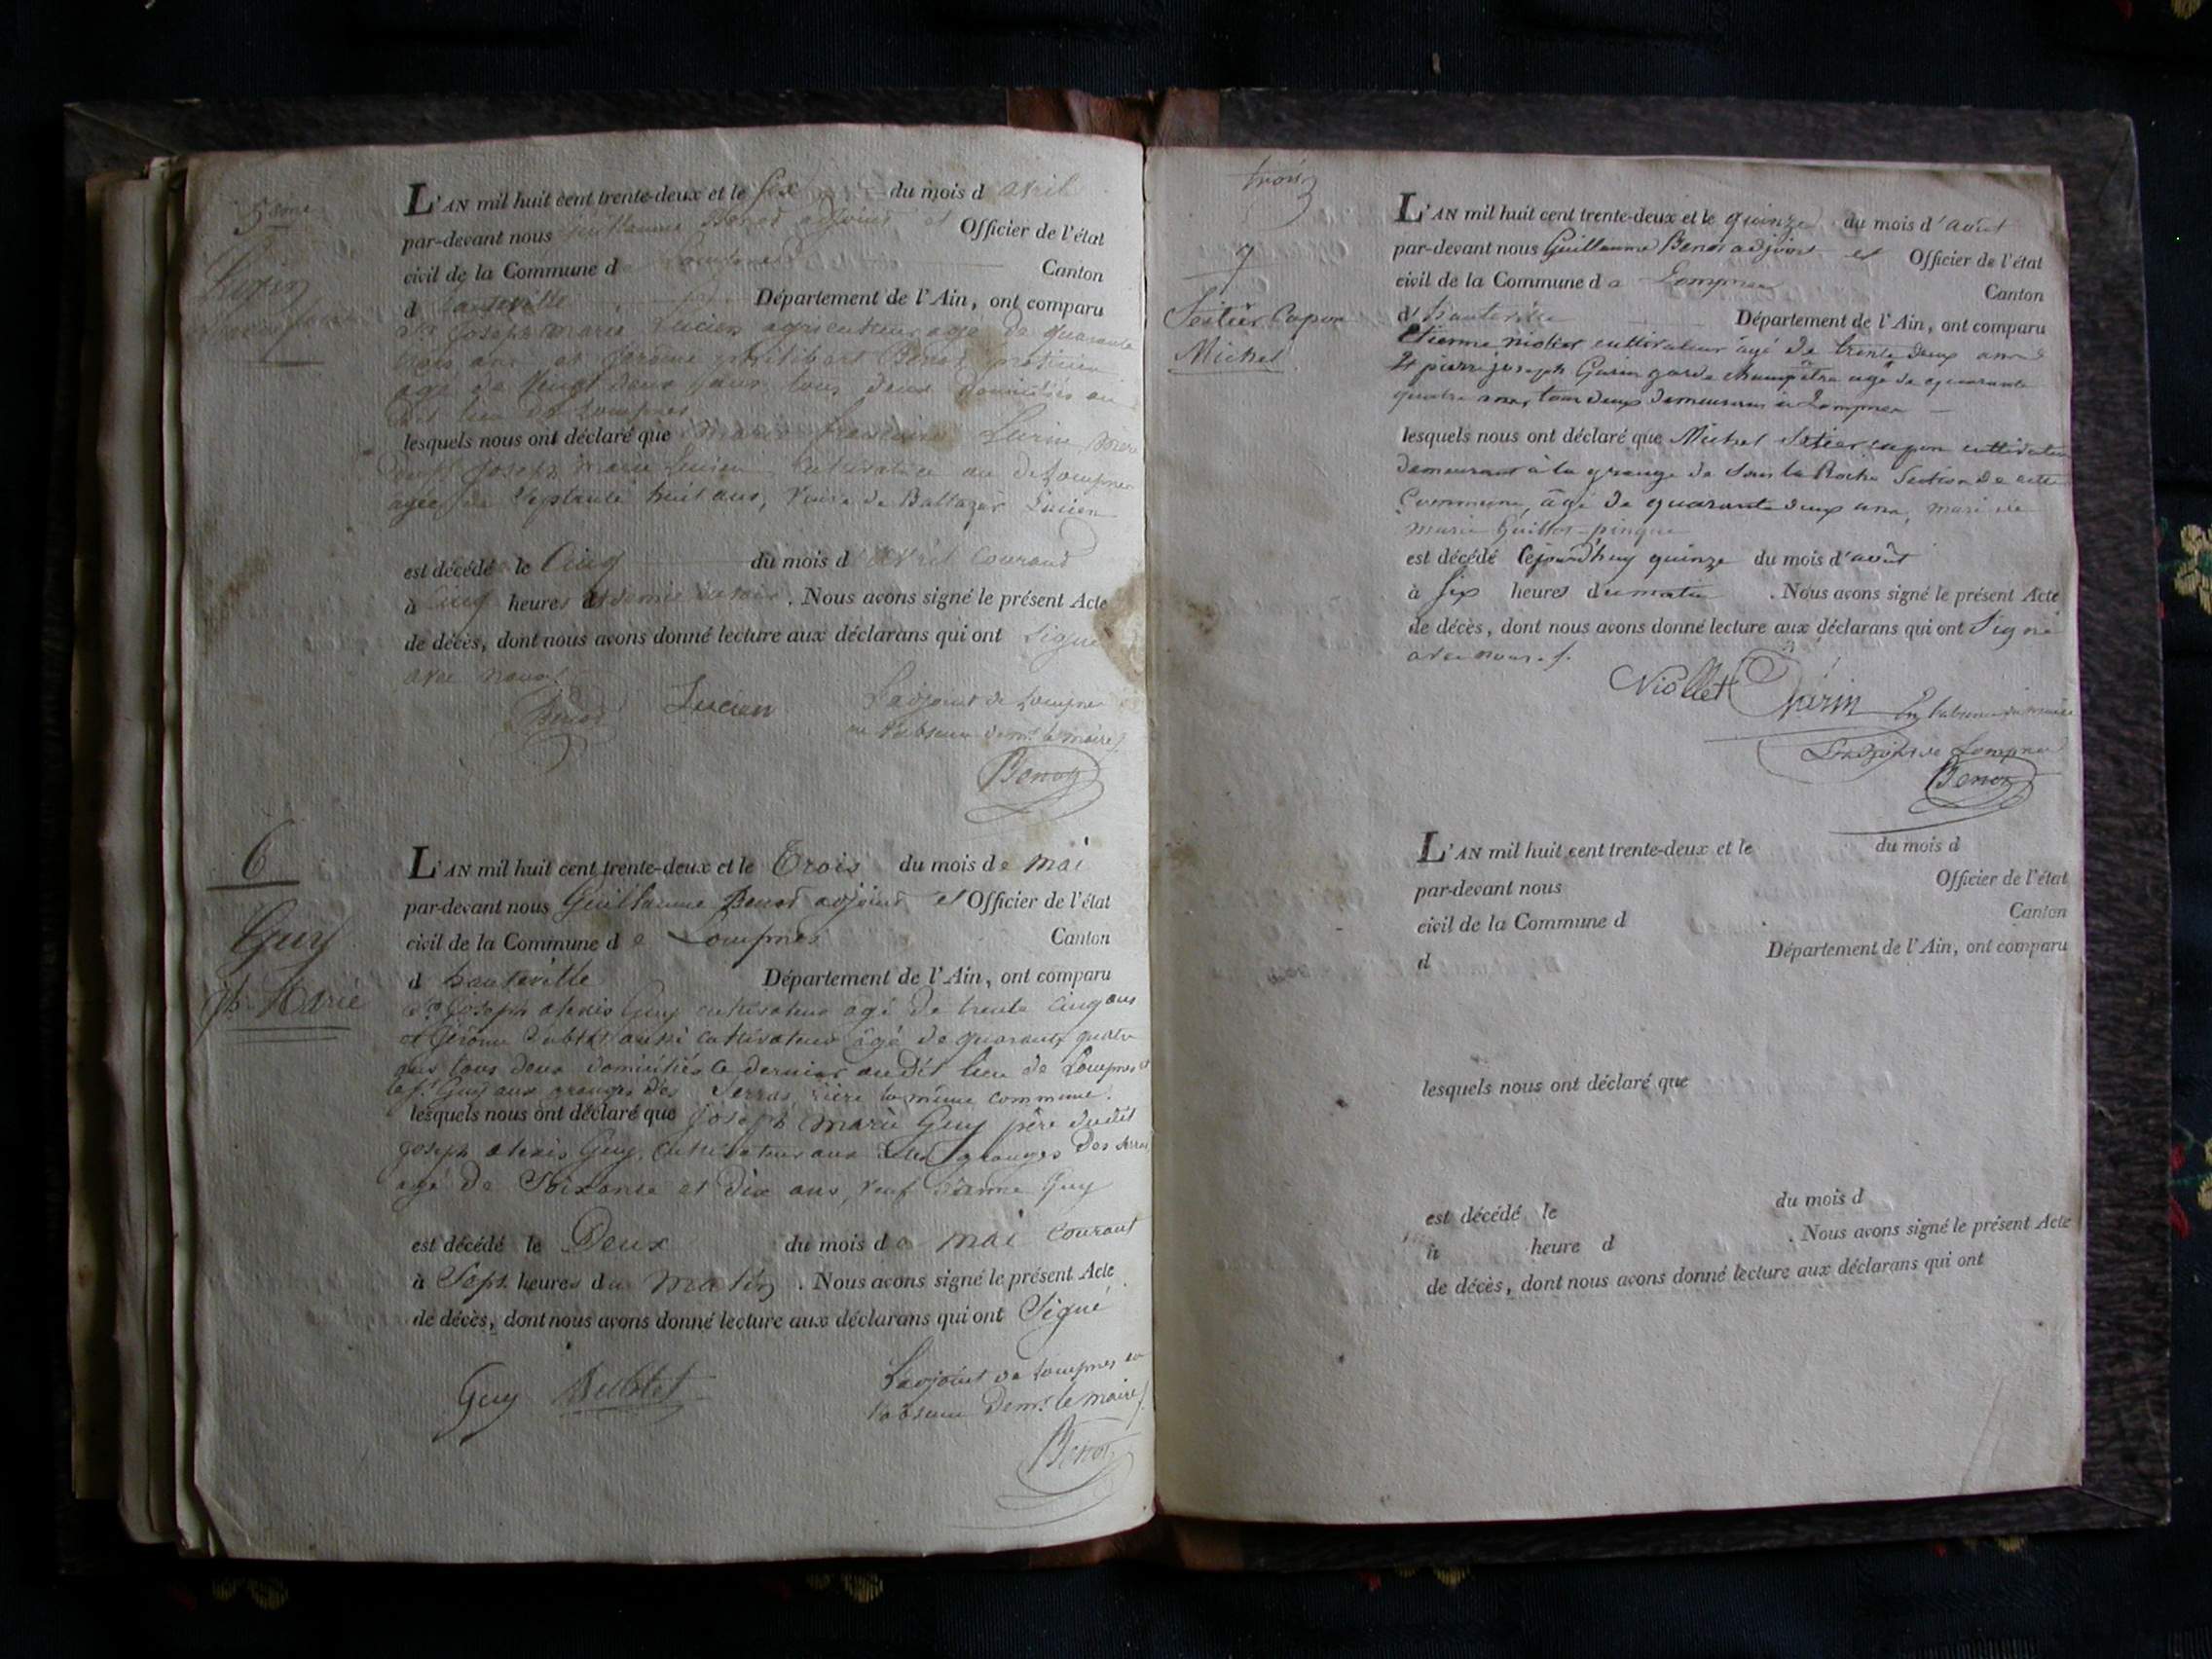 5eme
L'AN mil huit cent trente-deux et le six du mois d avril
par-devant nous Guillaume Benod adjoint et Officier de l'état
civil de la Commune de Lompnes Canton
d hauteville Département de l'Ain, ont comparu
Sr. Joseph marie Lucien agriculteur agé de quarante
trois ans et Jérôme philibert Benod praticien
agé de Vingt deux ans tous deux domiciliés au
dit lieu de Lompnes
lesquels nous ont déclaré que marie françoise Lurin mère
dudit Joseph marie Lucien, Cultivatrice au dit Lompnes
agée de Septante huit ans, Veuve de Baltazar Lucien
est décédé le Cinq du mois d'avril Courant
à Cinq heures et demie du soir. Nous avons signé le présent Acte
de décès, dont nous avons donné lecture aux déclarans qui ont Signé
avec nous.
Benod Lucien L'adjoint de Lompnes
en l'absence de mr. le maire
Benod
6
Guy
Jh. Marie
L'AN mil huit cent trente-deux et le Trois du mois de mai
par-devant nous Guillaume Benod adjoint et Officier de l'état
civil de la Commune de Lompnes Canton
d hauteville Département de l'Ain, ont comparu
Sr. Joseph alexis Guy cultivateur âgé de trente cinq ans
et Jérôme aussi cultivateur âgé de quarante quatre
ans tous deux domiciliés le dernier audit lieu de Lompnes et
le Sr. Guy aux granges des Serras, rière la même commune.
lesquels nous ont déclaré que Joseph marie Guy père dudit
Joseph alexis Guy, Cultivateur aux granges Des Serras
agé de Soixante et Dix ans, veuf Guy
est décédé le Deux du mois de mai Courant
à Sept heures du matin. Nous avons signé le présent Acte
de décès, dont nous avons donné lecture aux déclarans qui ont Signé
Guy L'adjoint de Lompnes en
l'absence de mr. le maire
Benod
trois
7
Sestier Capon
Michel
L'AN mil huit cent trente-deux et le quinze du mois d'août
par-devant nous Guillaume Benod adjoint et Officier de l'état
civil de la Commune de Lompnes Canton
d'hauteville Département de l'Ain, ont comparu
Etienne niollet cultivateur âgé de trente deux ans
Et pierre joseph Garin garde champêtre agé de quarante
quatre ans, tous deux demeurans à Lompnes
lesquels nous ont déclaré que Michel Sestier capon cultivateur
demeurant à la grange de Sous la Roche Section de cette
Commune, âgé de quarante deux ans, mari de
marie Guillot pingue
est décédé Cejourd'huy quinze du mois d'août
à Six heures du matin. Nous avons signé le présent Acte
de décès, dont nous avons donné lecture aux déclarans qui ont Signé
avec nous.
Niollet Garin En l'absence du maire
L'adjoint de Lompnes
Benod
L'AN mil huit cent trente-deux et le du mois d
par-devant nous Officier de l'état
civil de la Commune d Canton
d Département de l'Ain, ont comparu
lesquels nous ont déclaré que
est décédé le du mois d
à heure d . Nous avons signé le présent Acte
de décès, dont nous avons donné lecture aux déclarans qui ont